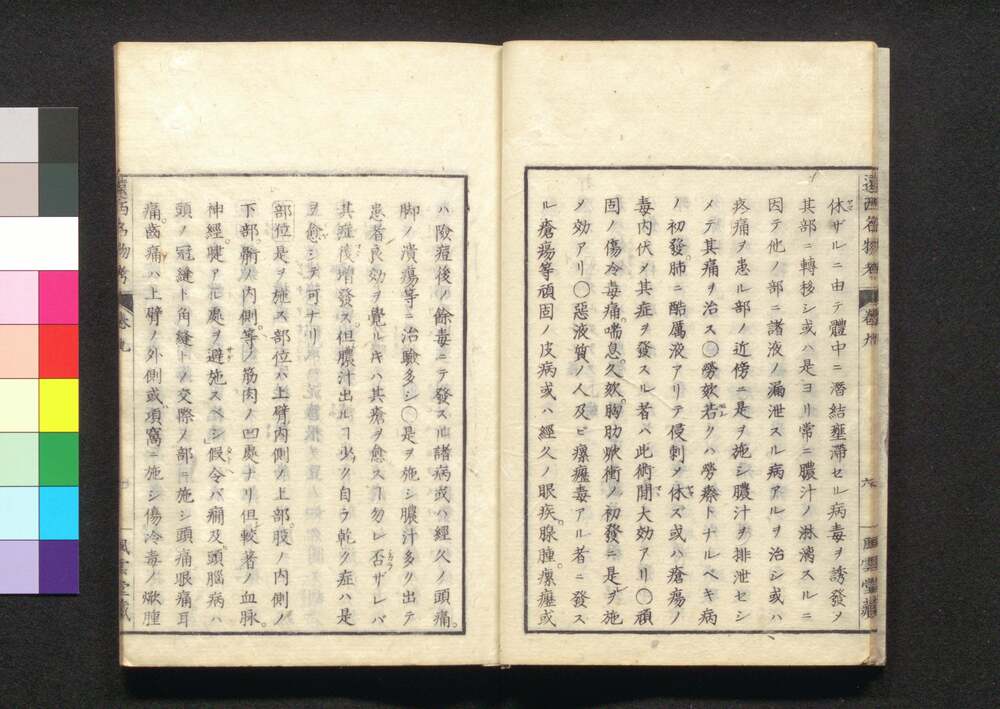 休ザルニ由テ體中ニ潛結壅滯セル病毒ヲ誘發ヲ
其部ニ轉移シ或ハ是ヨリ常ニ膿汁ノ淋漓スルニ
因テ他ノ部ニ諸液ノ漏泄スル病アルヲ治シ或ハ
疼痛ヲ患ル部ノ近傍ニ是ヲ施シ膿汁ヲ排泄セシ
メテ其痛ヲ治ス〇勞欬若クハ勞瘵トナルベキ病
ノ初發肺ニ酷厲液アリテ侵刺メ休ズ或ハ瘡瘍ノ
毒内伏メ其症ヲ發スル者ハ此術間大効アリ〇頑
固ノ傷冷毒痛喘息久欬胸肋焮衝ノ初發ニ是ヲ施
メ効アリ〇惡液質ノ人及ビ瘰癧毒アル者ニ發ス
ル瘡瘍等頑固ノ皮病或ハ經久ノ眼疾腺腫瘰癧或
遠西名物考 卷
風雲堂藏
ハ險痘後ノ餘毒ニテ發スル諸病或ハ經久ノ頭痛
脚ノ潰瘍等ニ治驗多シ〇是ヲ施シ膿汁多ク出テ
患者良効ヲ覺ルキハ其瘡ヲ愈スヿ勿レ否ザレバ
其症後増發ス但膿汁出ルヿ少ク自ラ乾ク症ハ是
愈シテ可ナリ
部位是ヲ施ス部位ハ上臂内側ノ上部股ノ内側ノ
下部腨ノ内側等ノ筋肉ノ凹處ナリ但較著ノ血脉
神經腱アル處ヲ避施スベシ假令バ癇及頭腦病ハ
頭ノ冠縫ト角縫トノ交際ノ部ニ施シ頭痛眼痛耳
痛齒痛ハ上臂ノ外側或項窩ニ施シ傷冷毒ノ焮腫
遠西名物考 卷九
風雲堂藏